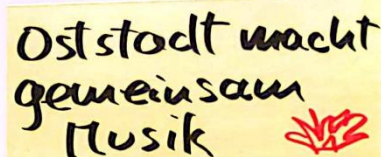 Oststadt macht
gemeinsam
Musik